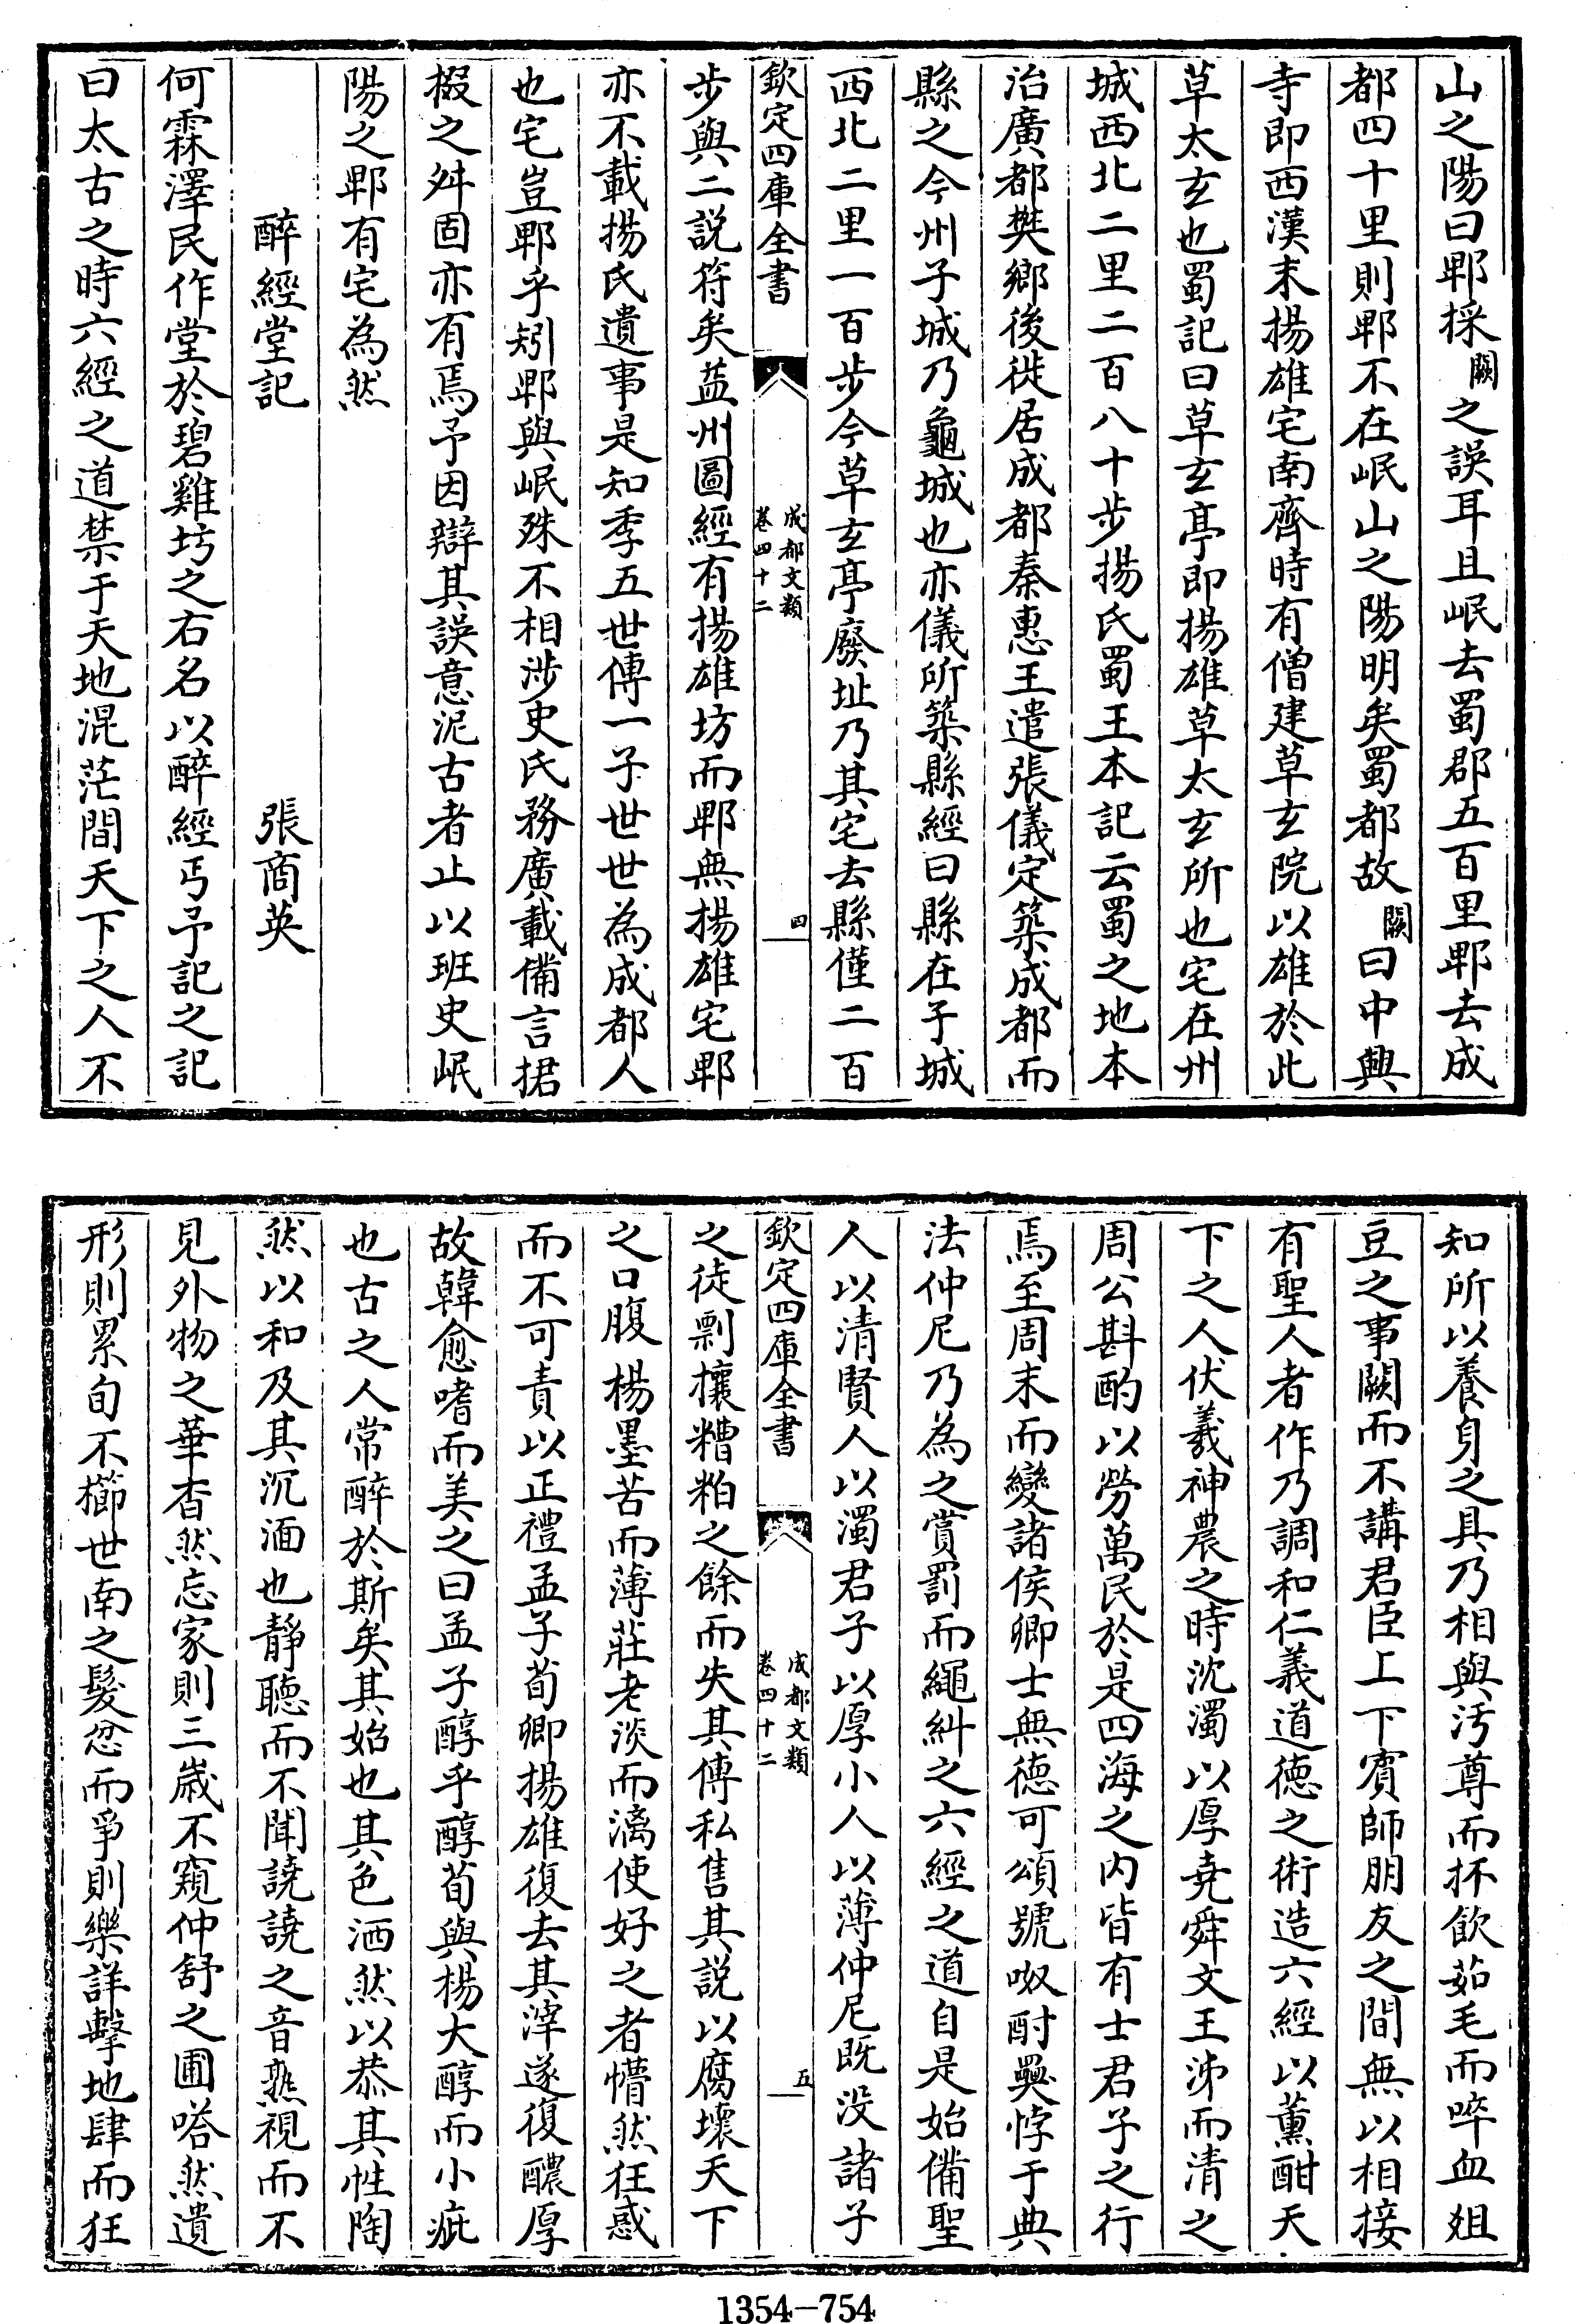 山之陽曰郫採闕之誤耳且岷去蜀郡五百里郫去成
都四十里則郫不在岷山之陽明矣蜀都故闕曰中興
寺即西漢末揚雄宅南齊時有僧建草玄院以雄於此
草太玄也蜀記曰草玄亭即揚雄草太玄所也宅在州
城西北二里二百八十步揚氏蜀王本記云蜀之地本
治廣都樊鄉後徙居成都秦惠王遣張儀定築成都而
縣之今州子城乃龜城也亦儀所築縣經曰縣在子城
西北二里一百步今草玄亭廢址乃其宅去縣僅二百
欽定四庫全書
成都文類
卷四十二
四
步與二説符矣益州圖經有揚雄坊而郫無揚雄宅郫
亦不載揚氏遺事是知季五世傳一子世世為成都人
也宅豈郫乎矧郫與岷殊不相涉史氏務廣載備言捃
掇之舛固亦有焉予因辯其誤意泥古者止以班史岷
陽之郫有宅為然
醉經堂記
張商英
何霖澤民作堂於碧雞坊之右名以醉經丐予記之記
曰太古之時六經之道禁于天地混茫間天下之人不
知所以養身之具乃相與汚尊而抔飲茹毛而啐血俎
豆之事闕而不講君臣上下賓師朋友之間無以相接
有聖人者作乃調和仁義道德之術造六經以薰酣天
下之人伏羲神農之時沈濁以厚堯舜文王沛而清之
周公斟酌以勞萬民於是四海之内皆有士君子之行
焉至周末而變諸侯卿士無德可頌號呶酎㒼悖于典
法仲尼乃為之賞罰而繩糾之六經之道自是始備聖
人以清賢人以濁君子以厚小人以薄仲尼既没諸子
欽定四庫全書
成都文類
卷四十二
五
之徒剽攘糟粕之餘而失其傳私售其説以腐壞天下
之口腹楊墨苦而薄莊老淡而漓使好之者懵然狂惑
而不可責以正禮孟子荀卿揚雄復去其滓遂復醲厚
故韓愈嗜而美之曰孟子醇乎醇荀與楊大醇而小疵
也古之人常醉於斯矣其始也其色洒然以恭其性陶
然以和及其沉湎也靜聽而不聞譊譊之音熟視而不
見外物之華杳然忘家則三歲不窺仲舒之圃嗒然遺
形則累旬不櫛世南之髮忿而爭則樂詳擊地肆而狂
1354-754